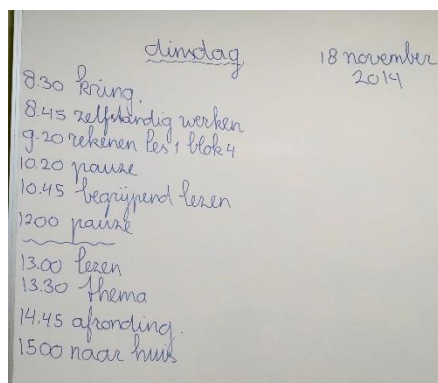 dinsdag
18 november
2014
8.30 kring.
8.45 zelfständig werken
9.20 rekenen les 1 blok 4
10.20 pauze
10.45 begrijpend lezen
1200 pauze
13.00 lezen
13.30 thema
14.45 afronding.
1500 naar huis